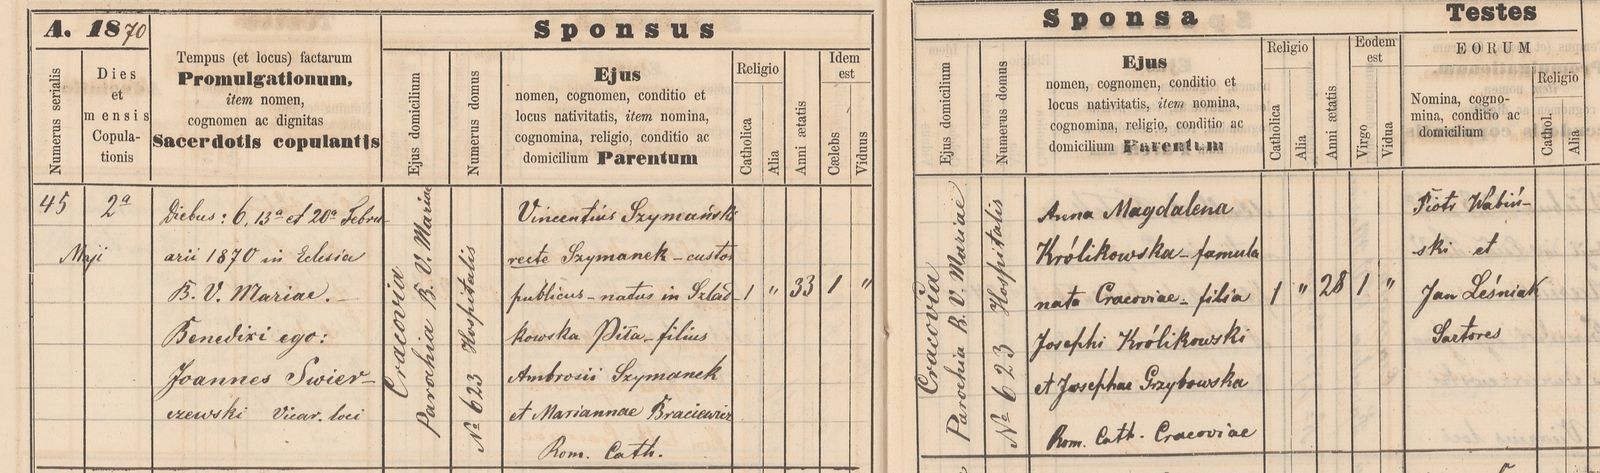 A. 1870
Numerus serialis
Dies
et
mensis
Copula-
tionis
Tempus (et locus) factarum
Promulgationum,
item nomen,
cognomen ac dignitas
Sacerdotis copulantis
Sponsus
Ejus domicilium
Numerus domus
Ejus
nomen, cognomen, conditio et
locus nativitatis, item nomina,
cognomina, religio, conditio ac
domicilium Parentum
Religio
Catholica
Alia
Anni ætatis
Idem
est
Cælebs
Viduus
45
2a
Maji
Diebus: 6, 13a et 20a Febru-
arii 1870 in Eclesia
B. V. Mariae.
Benedixi ego:
Joannes Swier-
czewski Vicar. loci
Cracovia
Parochia B. V. Mariae
No 623 Hospitalis
Vincentius Szymański
recte Szymanek - custos
publicus - natus in Szlad-
kowska Piła - filius
Ambrosii Szymanek
et Mariannae Braciewicz
Rom. Cath.
1 " 33 1 "
Sponsa
Ejus domicilium
Numerus domus
Ejus
nomen, cognomen, conditio et
locus nativitatis, item nomina,
cognomina, religio, conditio ac
domicilium Parentum
Religio
Catholica
Alia
Anni ætatis
Eodem
est
Virgo
Vidua
Testes
EORUM
Nomina, cogno-
mina, conditio ac
domicilium
Religio
Cathol.
Alia
Cracovia
Parochia B. V. Mariae
No 623 Hospitalis
Anna Magdalena
Królikowska - famula
nata Cracoviae - filia
Josephi Królikowski
et Josephae Grzybowska
Rom. Cath. Cracoviae
1 " 28 1 "
Piotr Wabiń-
ski et
Jan Leśniak
Sartores